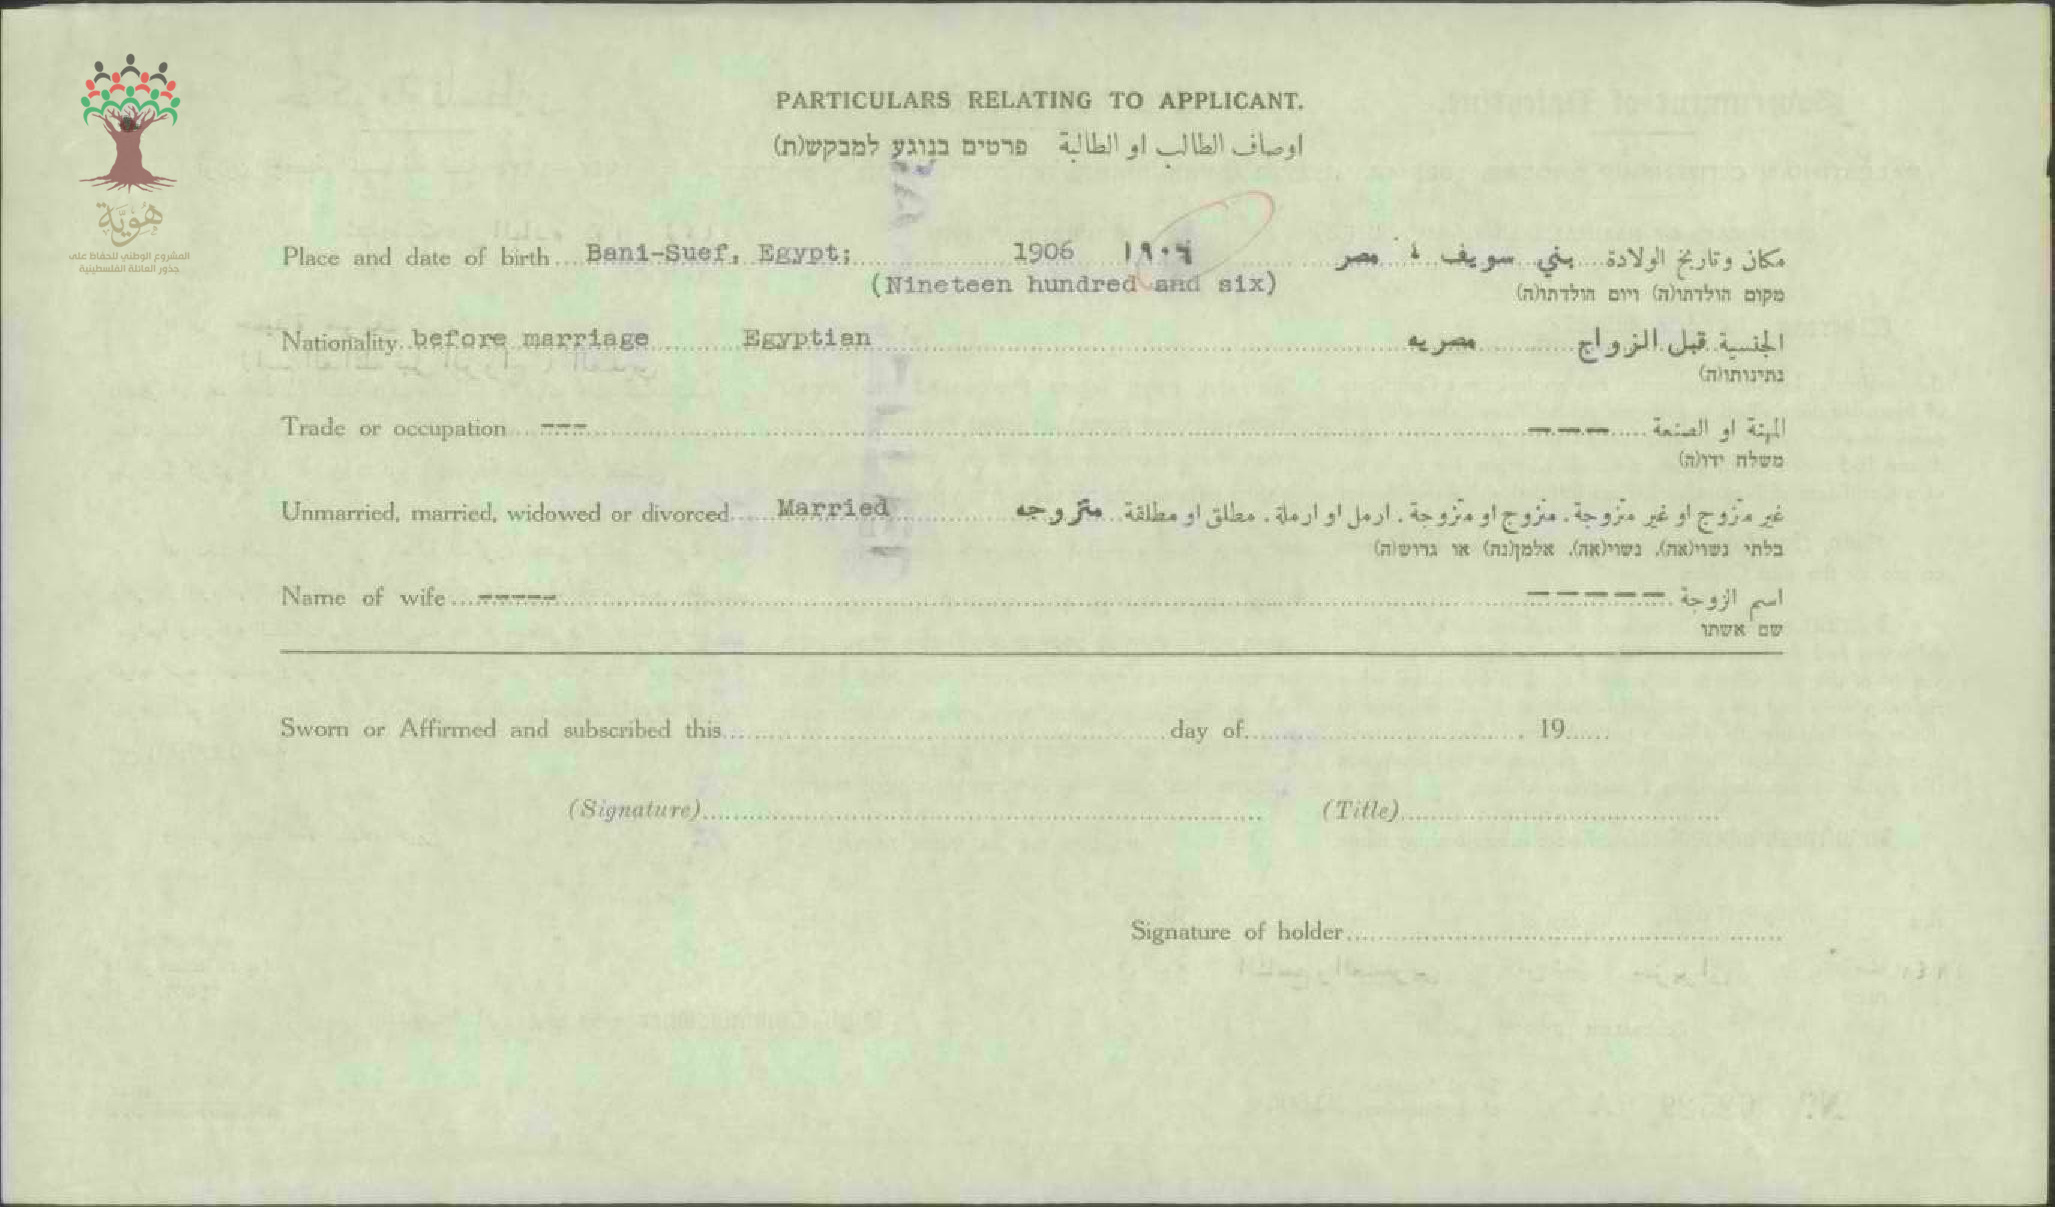 هُوِيَّة
المشروع الوطني للحفاظ على
جذور العائلة الفلسطينية
PARTICULARS RELATING TO APPLICANT.
اوصاف الطالب او الطالبة פרטים בנוגע למבקש(ת)
Place and date of birth... Bani-Suef, Egypt; 1906 ١٩٠٦ مكان وتاريخ الولادة... بني سويف ، مصر
(Nineteen hundred and six) מקום הולדתו(ה) ויום הולדתו(ה)
Nationality.. before marriage Egyptian الجنسية قبل الزواج مصريه
נתינותו(ה)
Trade or occupation... --- المهنة او الصنعة ---
משלח ידו(ה)
Unmarried, married, widowed or divorced.... Married غير متزوج او غير متزوجة. متزوج او متزوجة. ارمل او ارملة. مطلق او مطلقة متزوجه
בלתי נשוי(אה), נשוי(אה), אלמן(נה) או גרוש(ה)
Name of wife ... ----- اسم الزوجة -----
שם אשתו
Sworn or Affirmed and subscribed this........ day of........, 19......
(Signature)........ (Title)........
Signature of holder........